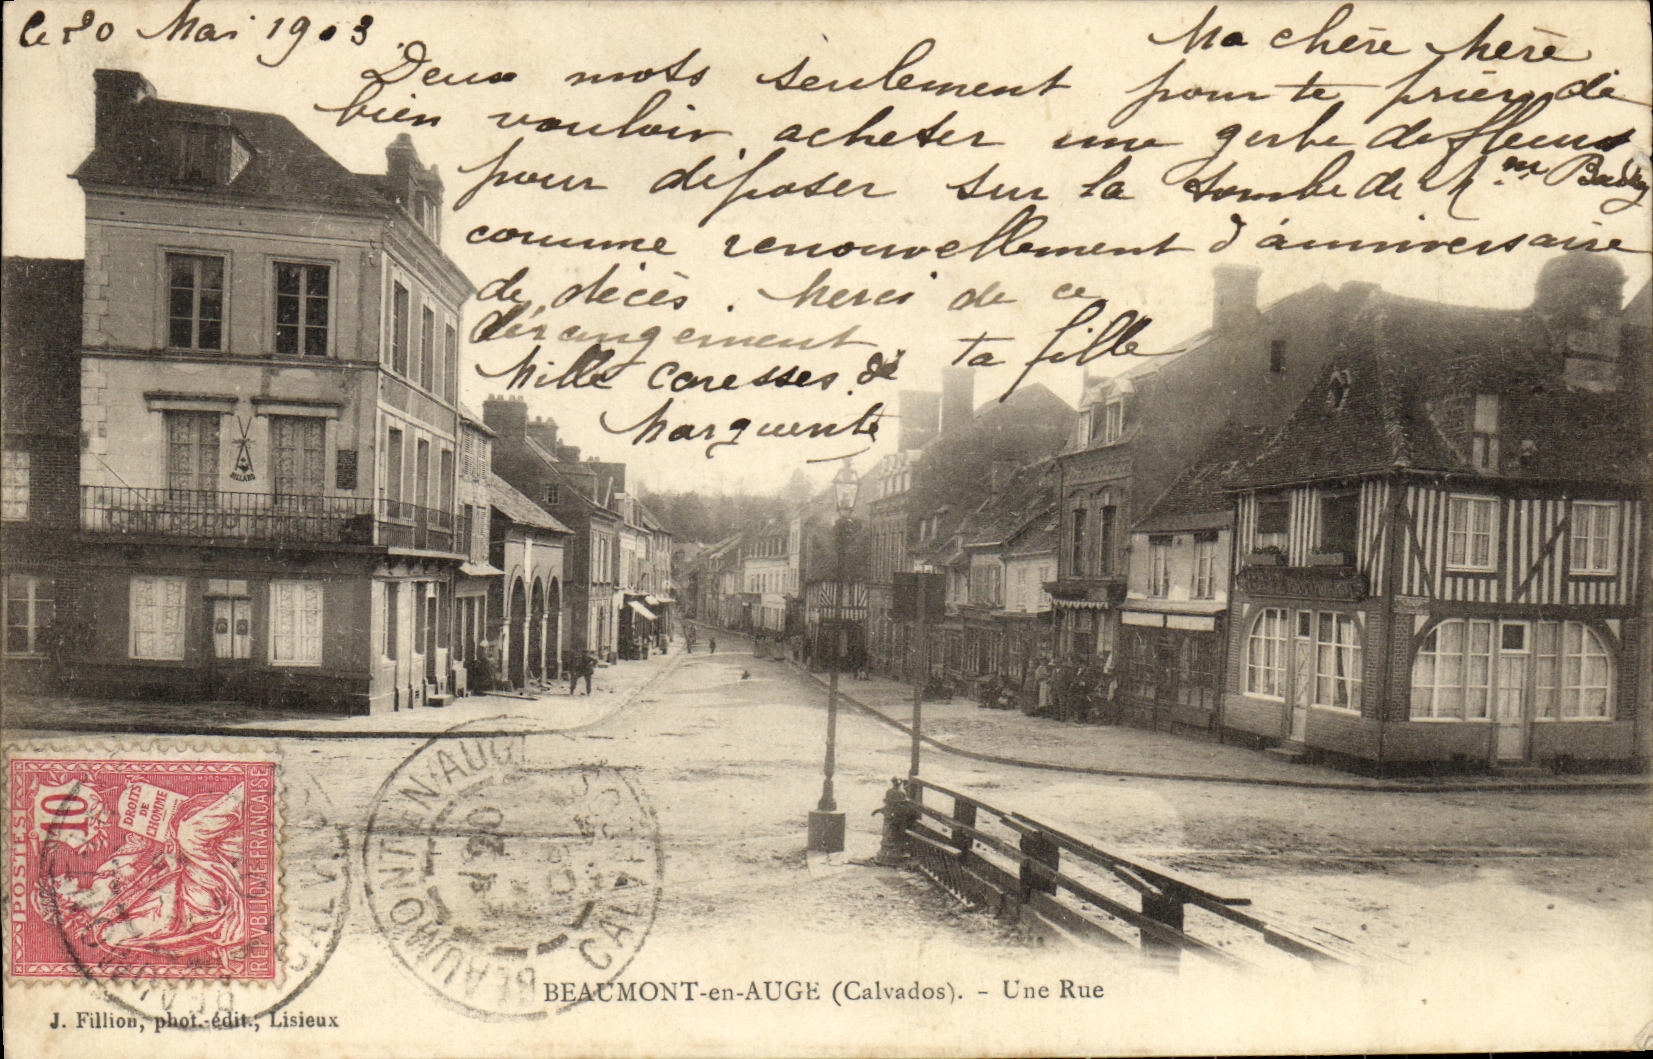 le 20 Mai 1903.
Ma chère Mère
Deux mots seulement pour te prier de
bien vouloir acheter une gerbe de fleurs
pour déposer sur la tombe de Mme
comme renouvellement d'anniversaire
de décès. Merci de ce
dérangement
ta fille
Mille caresses de
Marguerite
BILLARD
POSTES
10
DROITS
DE
L'HOMME
REPVBLIQVE FRANÇAISE
BEAUMONT-EN-AUGE
20
CALVADOS
BEAUMONT-en-AUGE (Calvados). - Une Rue
J. Fillion, phot.-édit., Lisieux